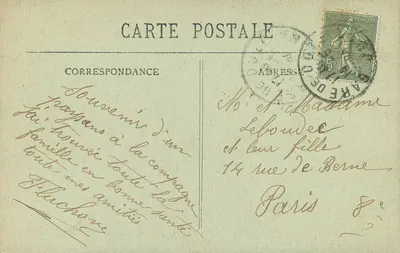 CARTE POSTALE
CORRESPONDANCE
ADRESSE
GARE DE
Souvenir d'un
à la campagne
J'ai trouvé toute la
famille en bonne santé
toute mes amitiés
Mr & Madame
Leboudec
& leur fille
14 rue de Berne
Paris 8e